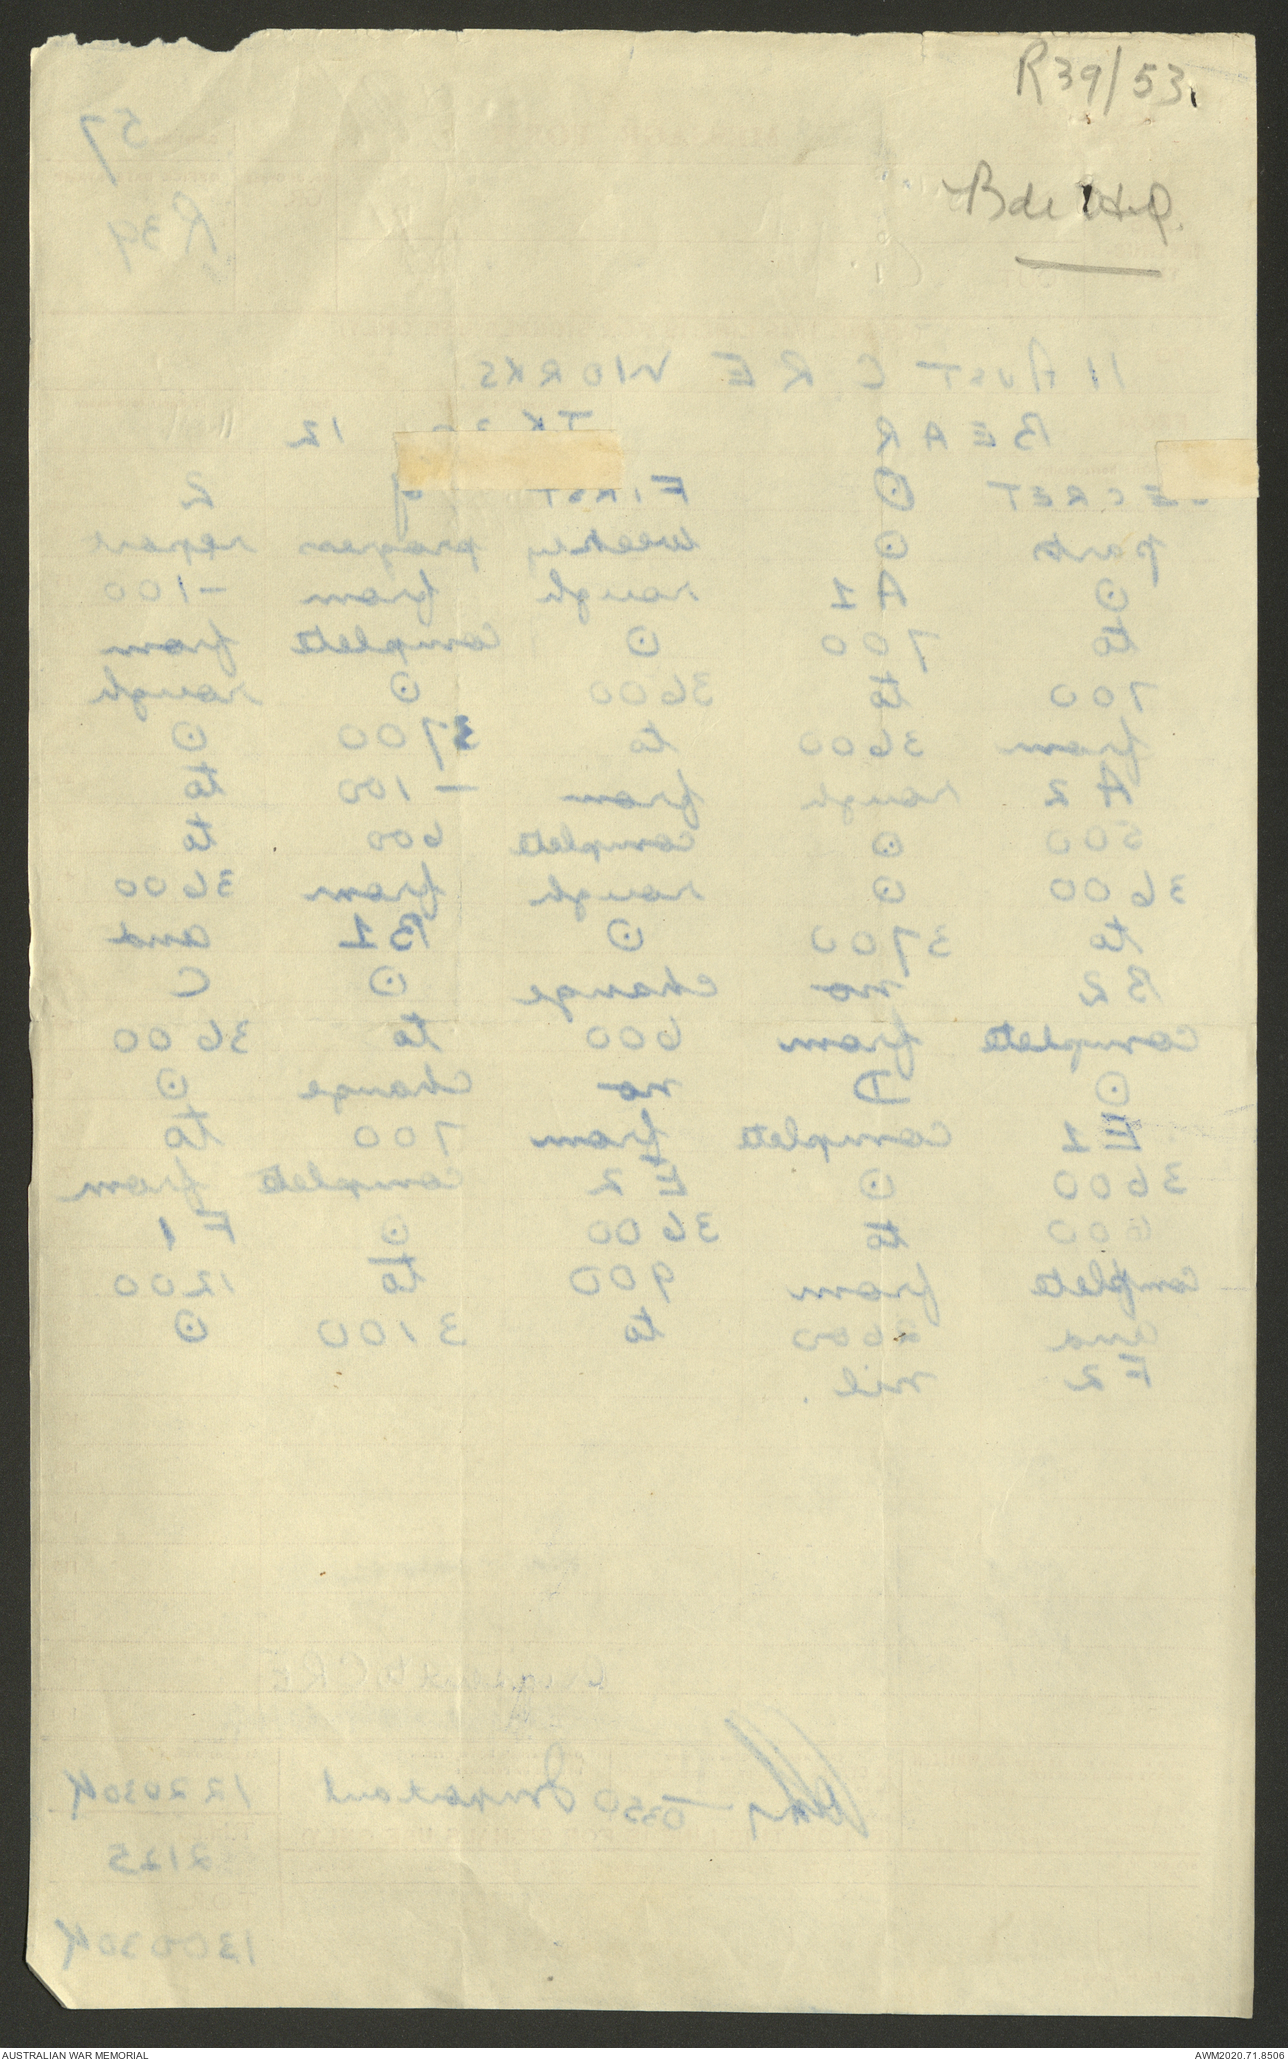 R39/53
Bde HQ.
57
R 39
11 AUST C R E WORKS
BEAR 12
SECRET ⊙ FIRST of 2
parts ⊙ weekly progress report
⊙ A1 rough from -100
to 700 ⊙ complete from
700 to 3600 ⊙ rough
from 3600 to 3700 ⊙
A2 rough from -100 to
500 ⊙ complete 600 to
3600 ⊙ rough from 3600
to 3700 ⊙ B1 and
B2 no change ⊙ C
complete from 600 to 3600
⊙ D no change ⊙
E1 complete from 700 to
3600 ⊙ E2 complete from
600 to 3600 ⊙ F1
complete from 900 to 1200
and 2600 to 3100 ⊙
F2 nil.
CRE
Important 122030K
0350
2125
130030K
AUSTRALIAN WAR MEMORIAL
AWM2020.71.8506